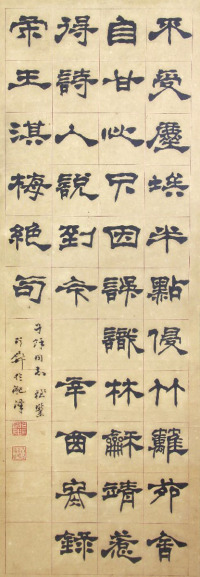 不受塵埃半點侵竹籬茆舍
自甘心只因誤識林龢靖惹
得詩人說到今 辛酉寒錄
宋王淇梅絕句
同志